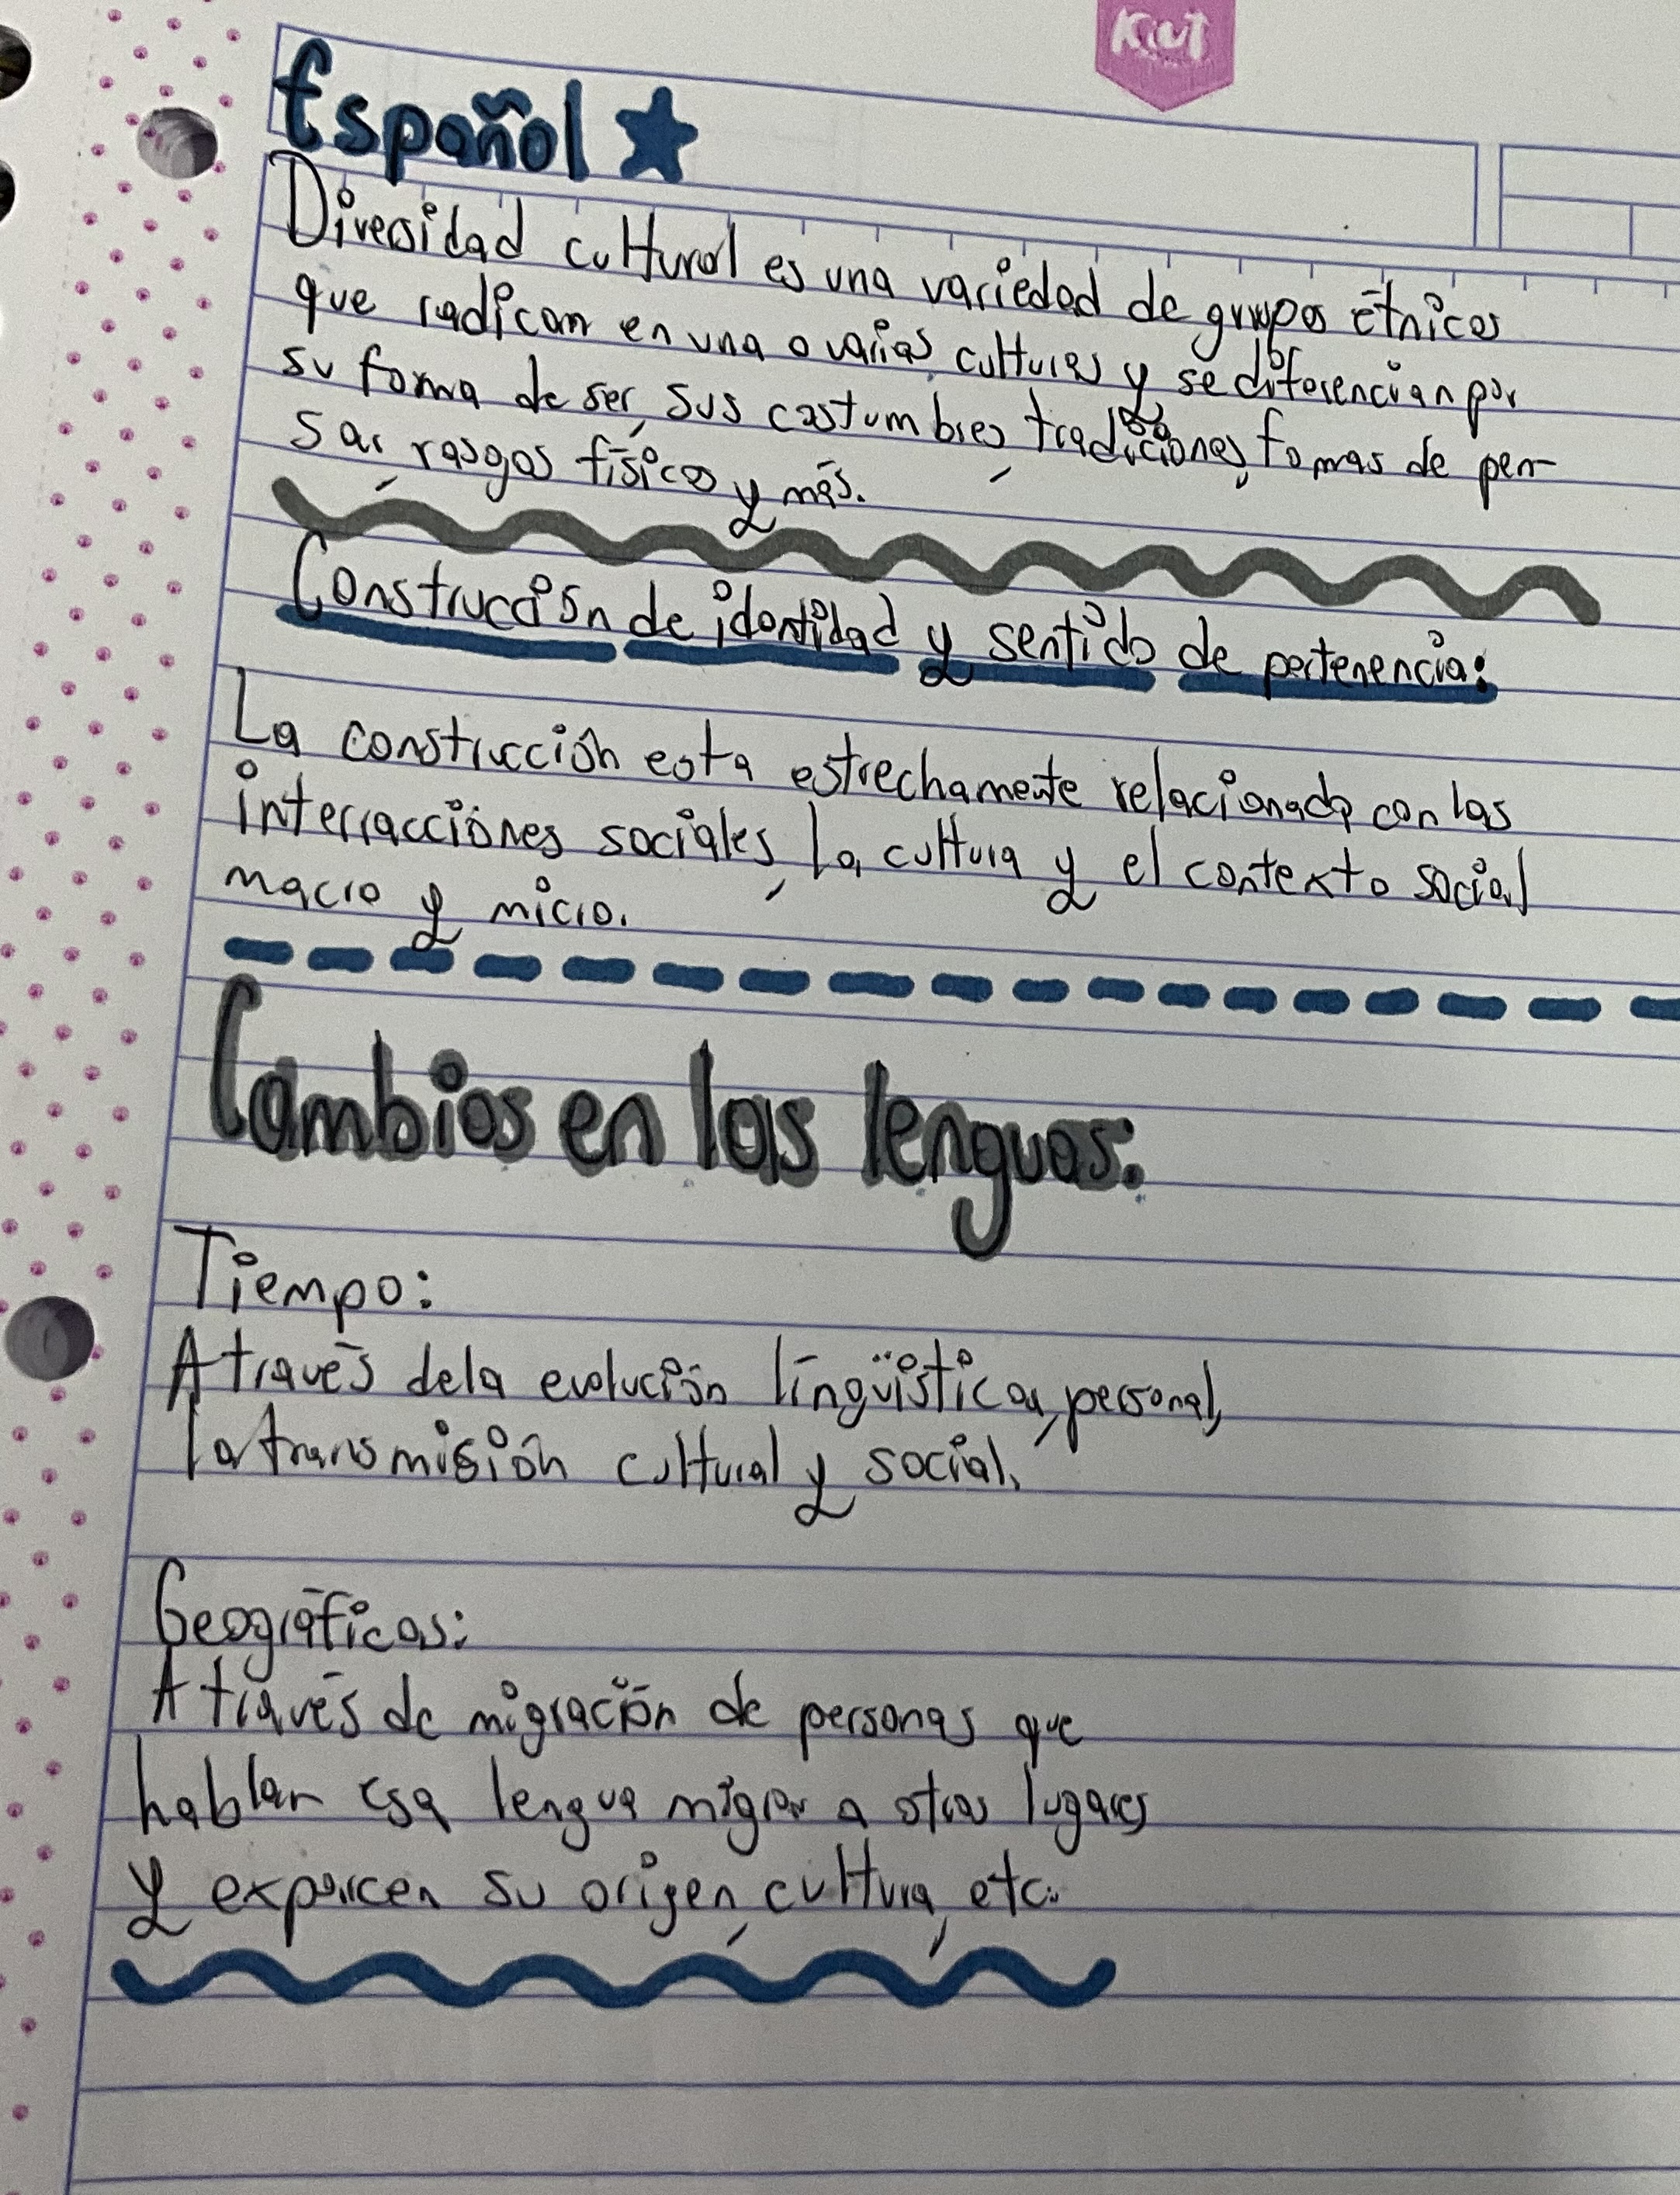 Kiut
Español
Diversidad cultural es una variedad de grupos étnicos
que radican en una o varias culturas y se diferencian por
su forma de ser, sus costumbres, tradiciones, fomas de pen-
sar, rasgos físicos y más.
Construcción de identidad y sentido de pertenencia:
La construcción esta estrechamente relacionada con las
interracciones sociales, la cultura y el contexto social
macro y micro.
Cambios en las lenguas:
Tiempo:
A través dela evolución língüistica, personal,
la transmisión cultural y social.
Geográficas:
A través de migración de personas que
hablan esa lengua migran a otros lugares
y exparcen su origen, cultura, etc.